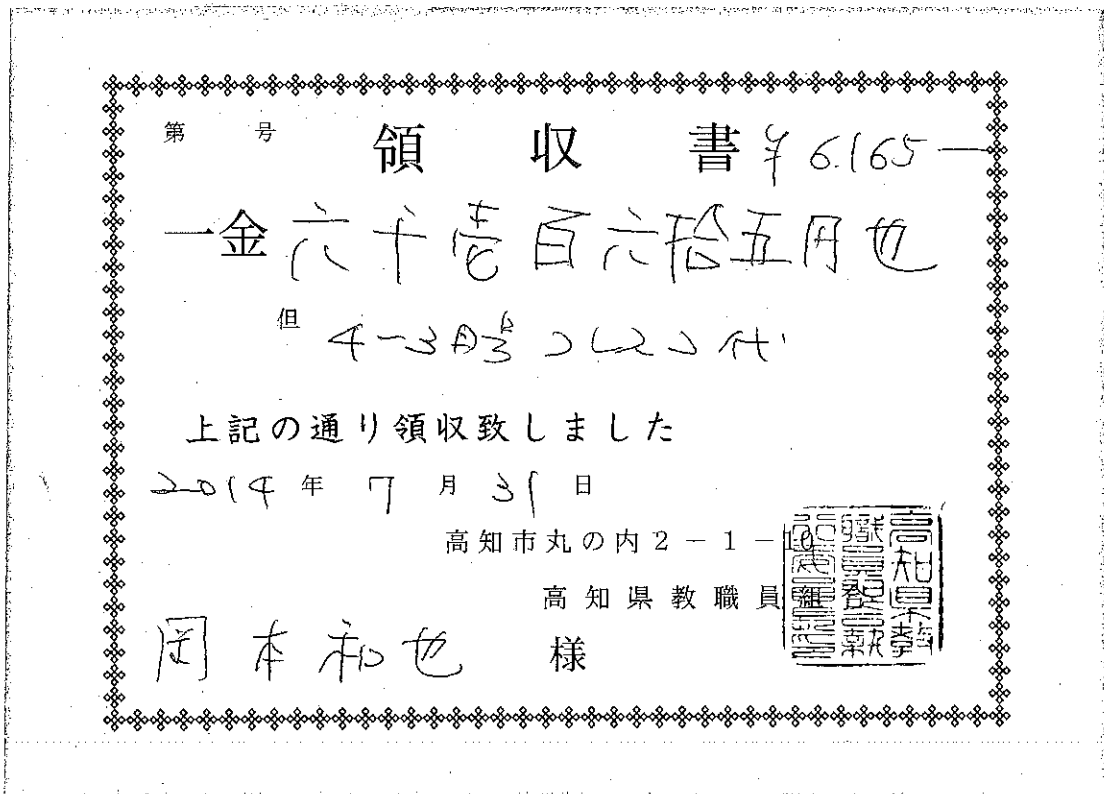 第 号 領収書 ¥6.165―
一金 六千壱百六拾五円也
但 4~3月
上記の通り領収致しました
2014年 7月 31日
高知市丸の内2-1-10
高知県教職員組合
岡本和也 様
高知県教職員組合執行委員長印